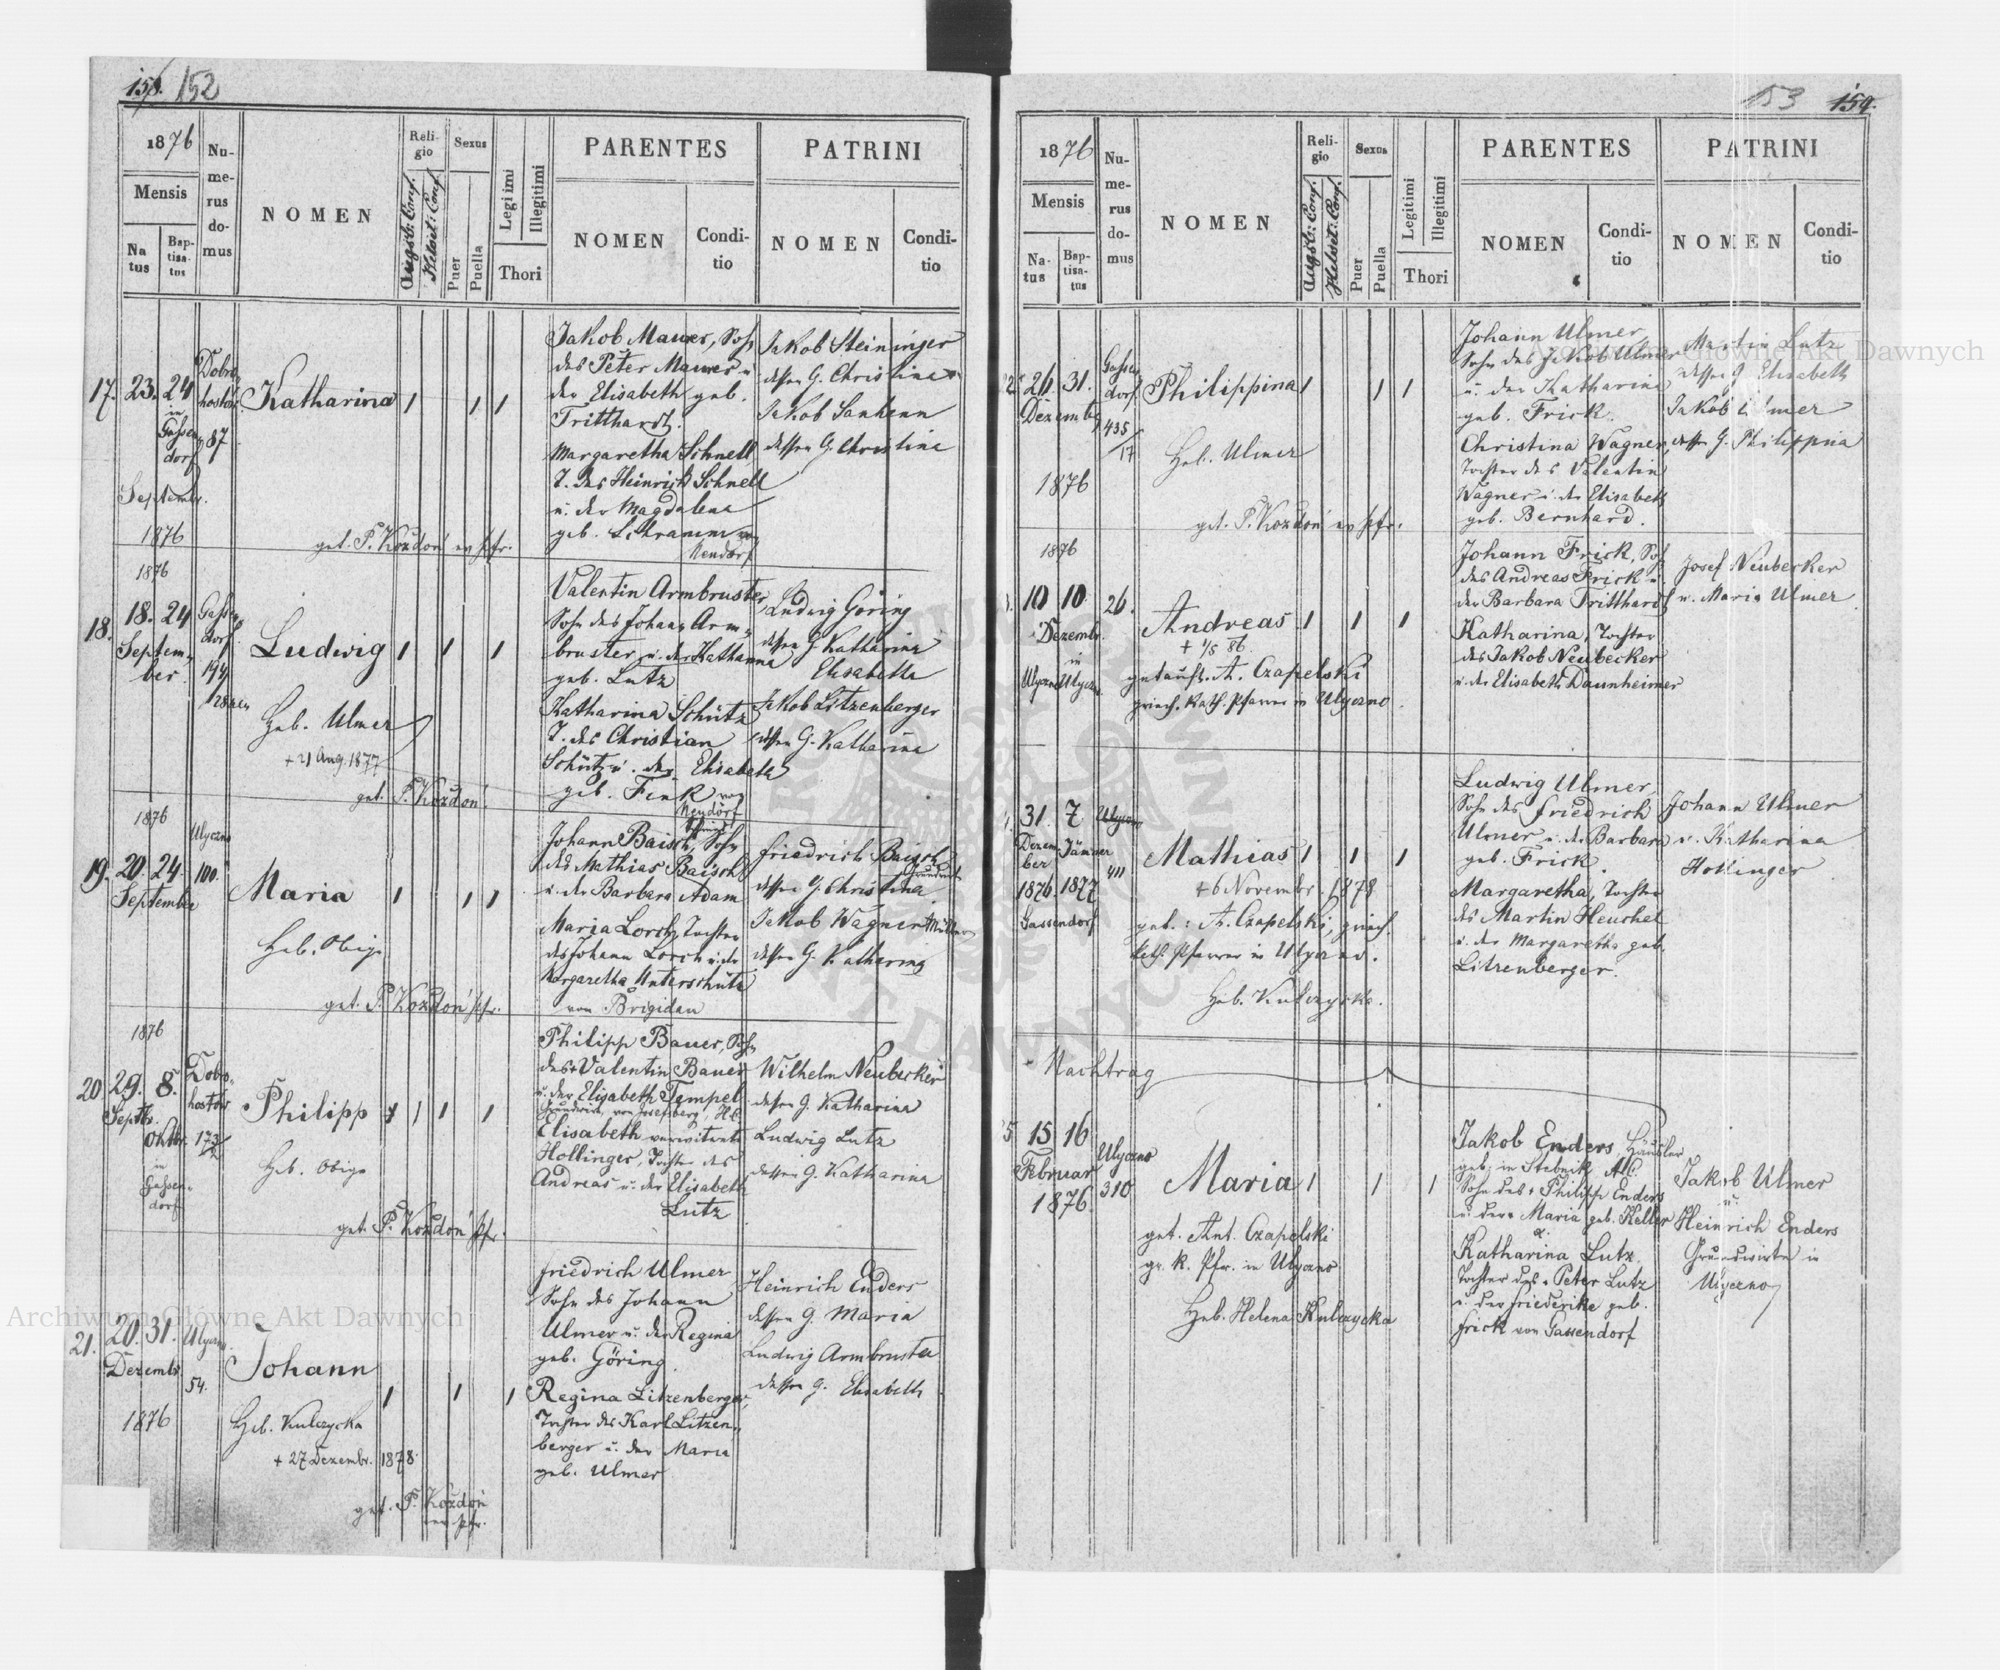 158. 152
1876
Mensis
Na
tus
Bap-
tisa-
tus
Nu-
me-
rus
do-
mus
NOMEN
Reli-
gio
Augsb: Conf.
Helvet: Conf.
Sexus
Puer
Puella
Legitimi
Illegitimi
Thori
PARENTES
NOMEN
Condi-
tio
PATRINI
NOMEN
Condi-
tio
17. 23. 24
in
Gassen
dorf
Septembr.
1876
Dobro
hostów
87
Katharina
1 1 1
get. P. Kozdoń ev Pfr.
Jakob Maurer, Sohn
des Peter Maurer u
der Elisabeth geb.
Tritthardt.
Margaretha Schnell
T. des Heinrich Schnell
u. der Magdalena
geb. Schramm von
Neudorf
Jakob Steininger
dessen G. Christina
Jakob Sanhenn
dessen G. Christina
1876
18. 18. 24
Septem-
ber
Gassen
dorf
194
Ludwig
1 1 1
Heb. Ulmer
+ 21 Aug. 1877
get. P. Kozdoń.
Valentin Armbruster,
Sohn des Johann Arm-
bruster u. der Katharina
geb. Lutz
Katharina Schütz
T. des Christian
Schütz u. der Elisabeth
geb. Fink von
Neudorf
Ludwig Göring
dessen G Katharina
Elisabetha
Jakob Litzenberger
dessen G. Katharina
1876
19. 20. 24.
September
Ulyczno
100.
Maria
1 1 1
Heb. Obige
get. P. Kozdoń Pfr.
Johann Baisch, Sohn
des Mathias Baisch
u. der Barbara Adam
Maria Lorch, Tochter
des Johann Lorch u. der
Margaretha Unterschütz
von Brigidau
Friedrich Baisch
dessen G. Christina
Jakob Wagner Müller
dessen G. Katharina
1876
20 29. 8.
Septbr.
Oktbr.
in
Gassen-
dorf
Dobro-
hostów
173
Philipp
1 1 1
Heb. Obige
get. P. Kozdoń Pfr.
Philipp Bauer, Sohn
des Valentin Bauer
u. der Elisabeth Tempel
Grundwirt, von Josefsberg, H.C.
Elisabeth verwitwete
Hollinger, Tochter des
Andreas u. der Elisabeth
Lutz
Wilhelm Neubecker
dessen G. Katharina
Ludwig Lutz
dessen G. Katharina
21. 20. 31.
Dezembr.
1876
Ulyczno
54.
Johann
1 1 1
Heb. Kulczycka
+ 27 Dezembr. 1878.
get. P. Kozdoń
ev Pfr.
Friedrich Ulmer
Sohn des Johann
Ulmer u. der Regina
geb. Göring
Regina Litzenberger,
Tochter des Karl Litzen-
berger u. der Maria
geb. Ulmer
Heinrich Enders
dessen G Maria
Ludwig Armbruster
dessen G. Elisabeth
Archiwum Główne Akt Dawnych
153 159.
1876
Mensis
Na-
tus
Bap-
tisa-
tus
Nu-
me-
rus
do-
mus
NOMEN
Reli-
gio
Augsb: Conf.
Helvet: Conf.
Sexus
Puer
Puella
Legitimi
Illegitimi
Thori
PARENTES
NOMEN
Condi-
tio
PATRINI
NOMEN
Condi-
tio
26. 31.
Dezembr
1876
Gassen
dorf
435
17
Philippina
1 1 1
Heb. Ulmer
get. P. Kozdoń ev Pfr.
Johann Ulmer,
Sohn des Jakob Ulmer
u. der Katharina
geb. Frick.
Christina Wagner,
Tochter des Valentin
Wagner u. der Elisabeth
geb. Bernhard.
Martin Lutz
dessen G Elisabeth
Jakob Ulmer
dessen G. Philippina
Archiwum Główne Akt Dawnych
1876
10 10.
Dezembr.
in
Ulyczno Ulyczno
26.
Andreas
1 1 1
+ 1/5 86.
getauft. A. Czapelski
griech. kath. Pfarrer in Ulyczno.
Johann Frick, Sohn
des Andreas Frick u.
der Barbara Tritthardt
Katharina, Tochter
des Jakob Neubecker
u. der Elisabeth Daunheimer
Josef Neubecker
u. Maria Ulmer
31. 7
Dezem-
ber
Jänner
1876. 1877
Gassendorf
Ulyczno
Mathias
1 1 1
+ 6 Novembr. 1878
get.: A. Czapelski, griech.
kath. Pfarrer in Ulyczno.
Heb. Kulczycka.
Ludwig Ulmer,
Sohn des Friedrich
Ulmer u. der Barbara
geb. Frick.
Margaretha, Tochter
des Martin Heuchel
u. der Margaretha geb.
Litzenberger.
Johann Ulmer
u. Katharina
Hollinger
Nachtrag
15 16
Februar
1876.
Ulyczno
310
Maria
1 1 1
get. Ant. Czapelski
gr. k. Pfr. in Ulyczno
Heb. Helena Kulczycka
Jakob Enders, Häusler
geb. in Stebnik A.C.
Sohn des + Philipp Enders
u. der + Maria geb. Keller
&
Katharina Lutz
Tochter des + Peter Lutz
u. der Friederike geb.
Frick von Gassendorf
Jakob Ulmer
u.
Heinrich Enders
Grundwirte in
Ulyczno